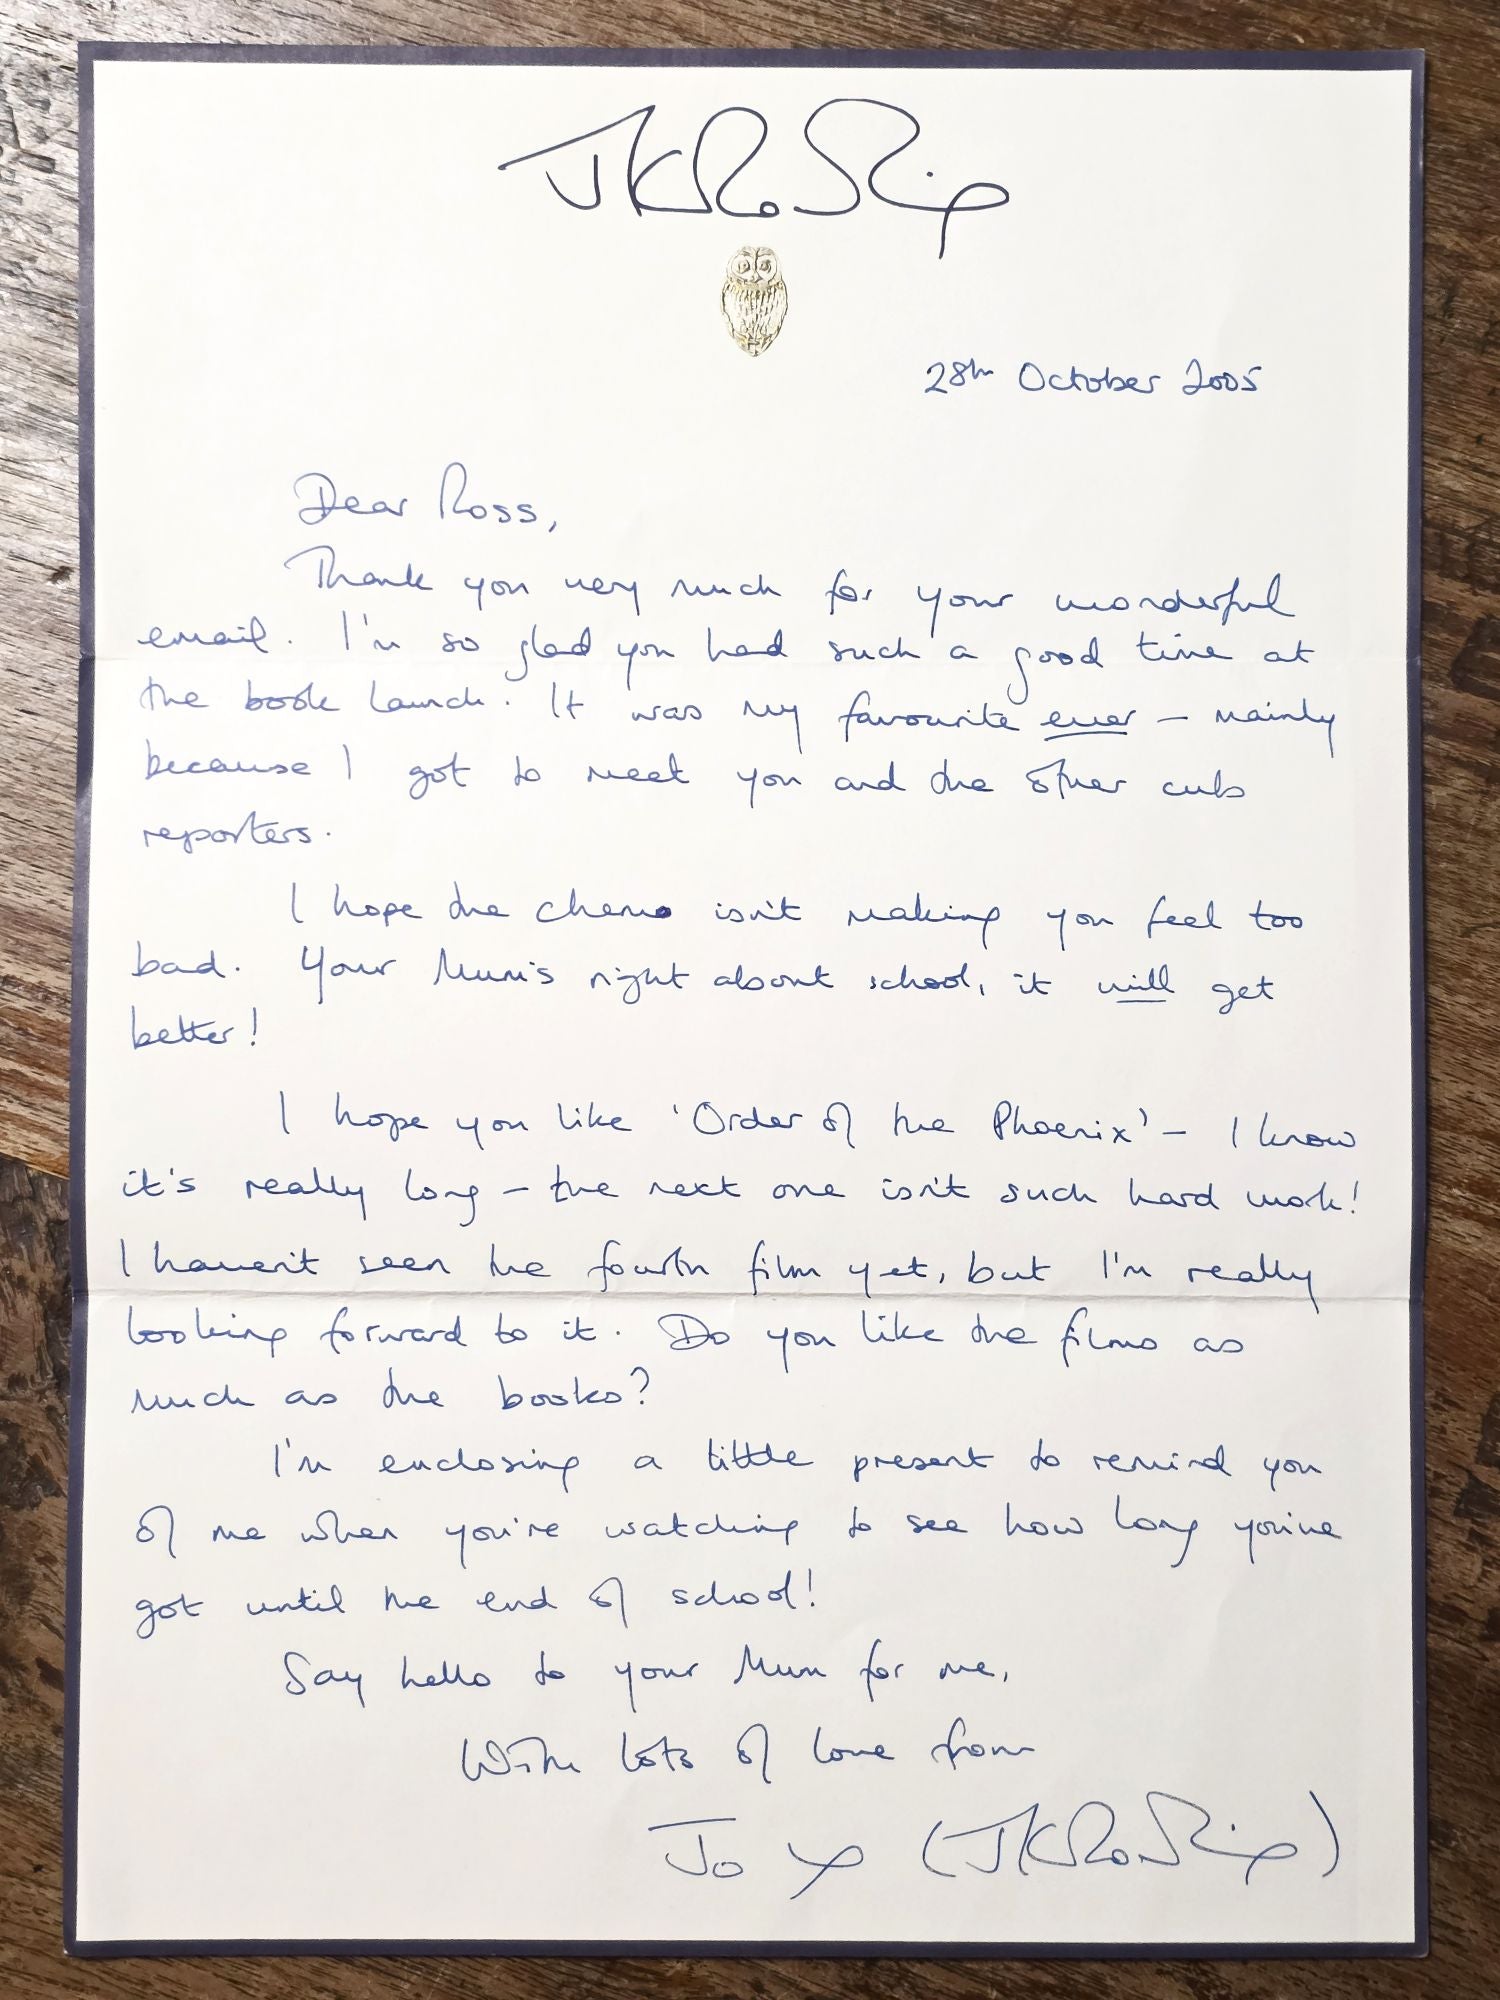 JKRowling
28th October 2005
Dear Ross,
Thank you very much for your wonderful
email. I'm so glad you had such a good time at
the book launch. It was my favourite ever – mainly
because I got to meet you and the other cub
reporters.
I hope the chemo isn't making you feel too
bad. Your Mum's right about school, it will get
better!
I hope you like 'Order of the Phoenix' – I know
it's really long – the next one isn't such hard work!
I haven't seen the fourth film yet, but I'm really
looking forward to it. Do you like the films as
much as the books?
I'm enclosing a little present to remind you
of me when you're watching to see how long you've
got until the end of school!
Say hello to your Mum for me,
With lots of love from
Jo x (JKRowling)